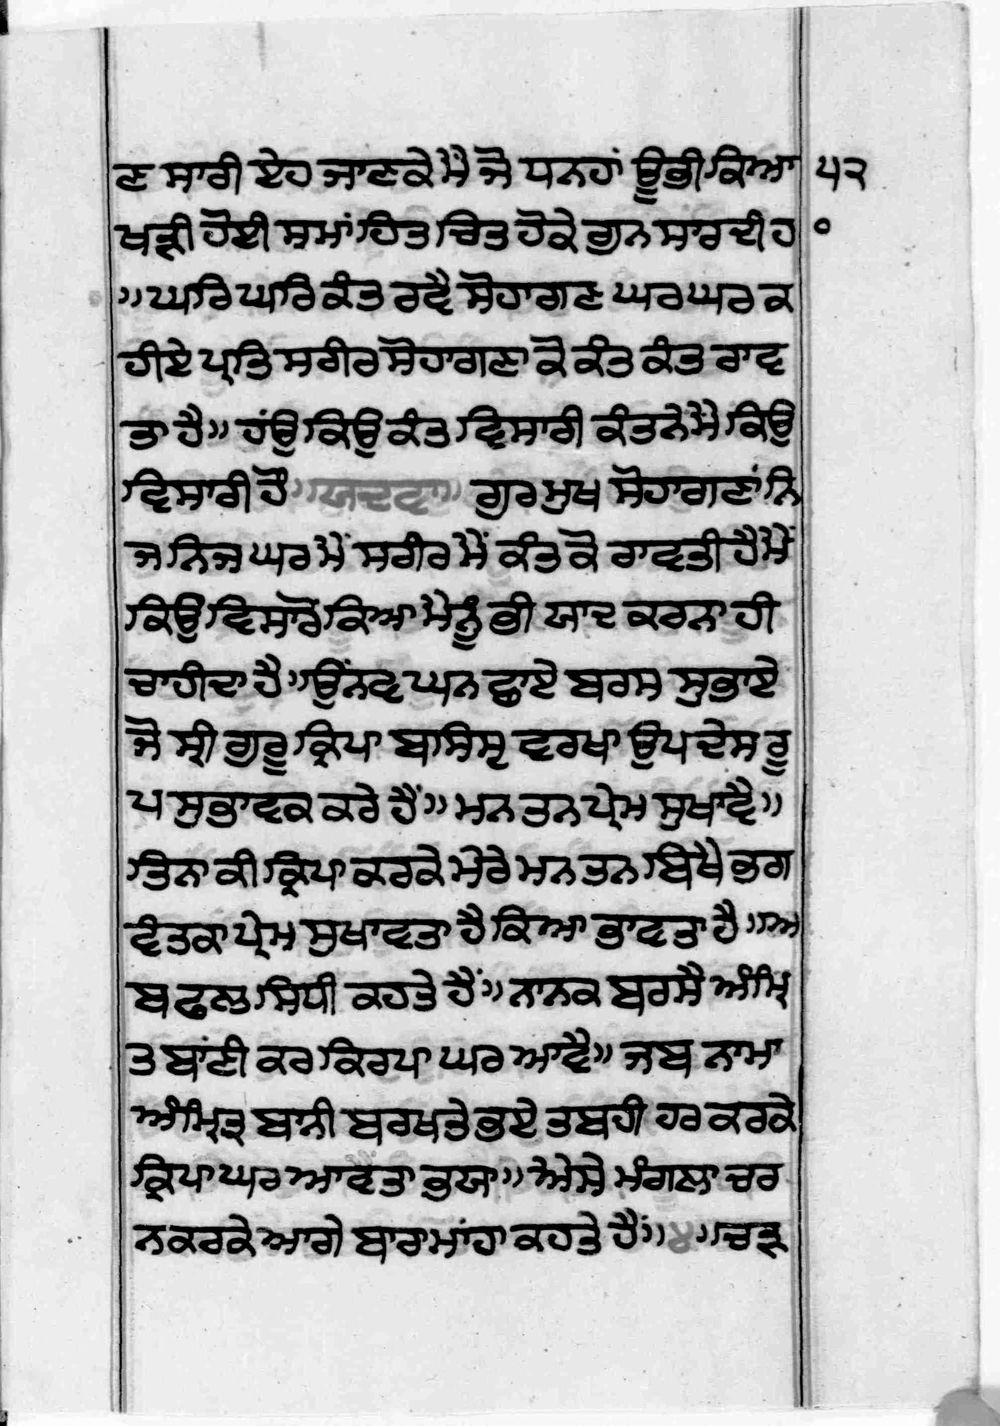 ਣ ਸਾਰੀ ਏਹ ਜਾਣਕੇ ਮੈ ਜੋ ਧਨਹਾਂ ਊਭੀ ਕਿਆ ੫੨
ਖੜੀ ਹੋਈ ਸਮਾਂ ਹਿਤ ਚਿਤ ਹੋਕੇ ਗੁਨ ਸਾਰਦੀ ਹ ੦
॥ ਘਰਿ ਘਰਿ ਕੰਤ ਰਵੈ ਸੋਹਾਗਣ ਘਰ ਘਰ ਕ
ਹੀਏ ਪ੍ਰਤਿ ਸਰੀਰ ਸੋਹਾਗਣਾ ਕੋ ਕੰਤ ਕੰਤ ਰਾਵ
ਤਾ ਹੈ॥ ਹਂਊ ਕਿਊ ਕੰਤ ਵਿਸਾਰੀ ਕੰਤਨੇ ਮੈ ਕਿਉ
ਵਿਸਾਰੀ ਹੌਂ ॥ਯਦਵਾ॥ ਗੁਰਮੁਖ ਸੋਹਾਗਣਾਂ ਨਿ
ਜ ਨਿਜ ਘਰ ਮੈਂ ਸਰੀਰ ਮੈਂ ਕੰਤ ਕੋ ਰਾਵਤੀ ਹੈ ਮੈਂ
ਕਿਉਂ ਵਿਸਾਰੋਂ ਕਿਆ ਮੈਨੂੰ ਭੀ ਯਾਦ ਕਰਨਾ ਹੀ
ਚਾਹੀਦਾ ਹੈ॥ ਉਂਨਵ ਘਨ ਛਾਏ ਬਰਸ ਸੁਭਾਏ
ਜੋ ਸ੍ਰੀ ਗੁਰੂ ਕ੍ਰਿਪਾ ਬਾਸਿਸ੍ਰ ਵਰਖਾ ਉਪਦੇਸ ਰੂ
ਪ ਸੁਭਾਵਕ ਕਰੇ ਹੈਂ॥ ਮਨ ਤਨ ਪ੍ਰੇਮ ਸੁਖਾਵੈ॥
ਤਿਨਾ ਕੀ ਕ੍ਰਿਪਾ ਕਰਕੇ ਮੇਰੇ ਮਨ ਤਨ ਬਿਖੈ ਭਗ
ਵੰਤਕਾ ਪ੍ਰੇਮ ਸੁਖਾਵਤਾ ਹੈ ਕਿਆ ਭਾਵਤਾ ਹੈ॥ਅ
ਬ ਫਲ ਸਿਧੀ ਕਹਤੇ ਹੈਂ॥ ਨਾਨਕ ਬਰਸੈ ਅੰਮ੍ਰਿ
ਤ ਬਾਣੀ ਕਰ ਕਿਰਪਾ ਘਰ ਆਵੈ॥ ਜਬ ਨਾਮਾ
ਅੰਮ੍ਰਿਤ ਬਾਨੀ ਬਰਖਤੇ ਭਏ ਤਬਹੀ ਹਰ ਕਰਕੇ
ਕ੍ਰਿਪਾ ਘਰ ਆਵਤਾ ਭਯਾ॥ ਐਸੇ ਮੰਗਲਾ ਚਰ
ਨ ਕਰਕੇ ਆਗੇ ਬਾਰਾਮਾਂਹਾ ਕਹਤੇ ਹੈਂ॥੪॥ਚੜ